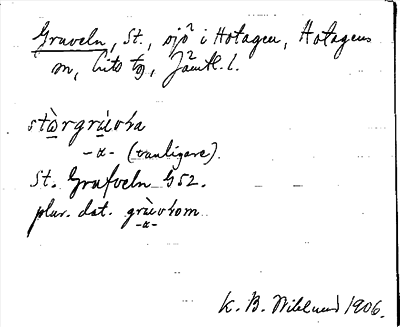 Graveln, St., sjö² i Hotagen, Hotagens
sn, Lits tg, Jämtl. l.
stòrgràvḷa
-α- (vanligare).
St. Grafveln G52.
plur. dat. gràvḷom
-α-
K. B. Wiklund 1906.